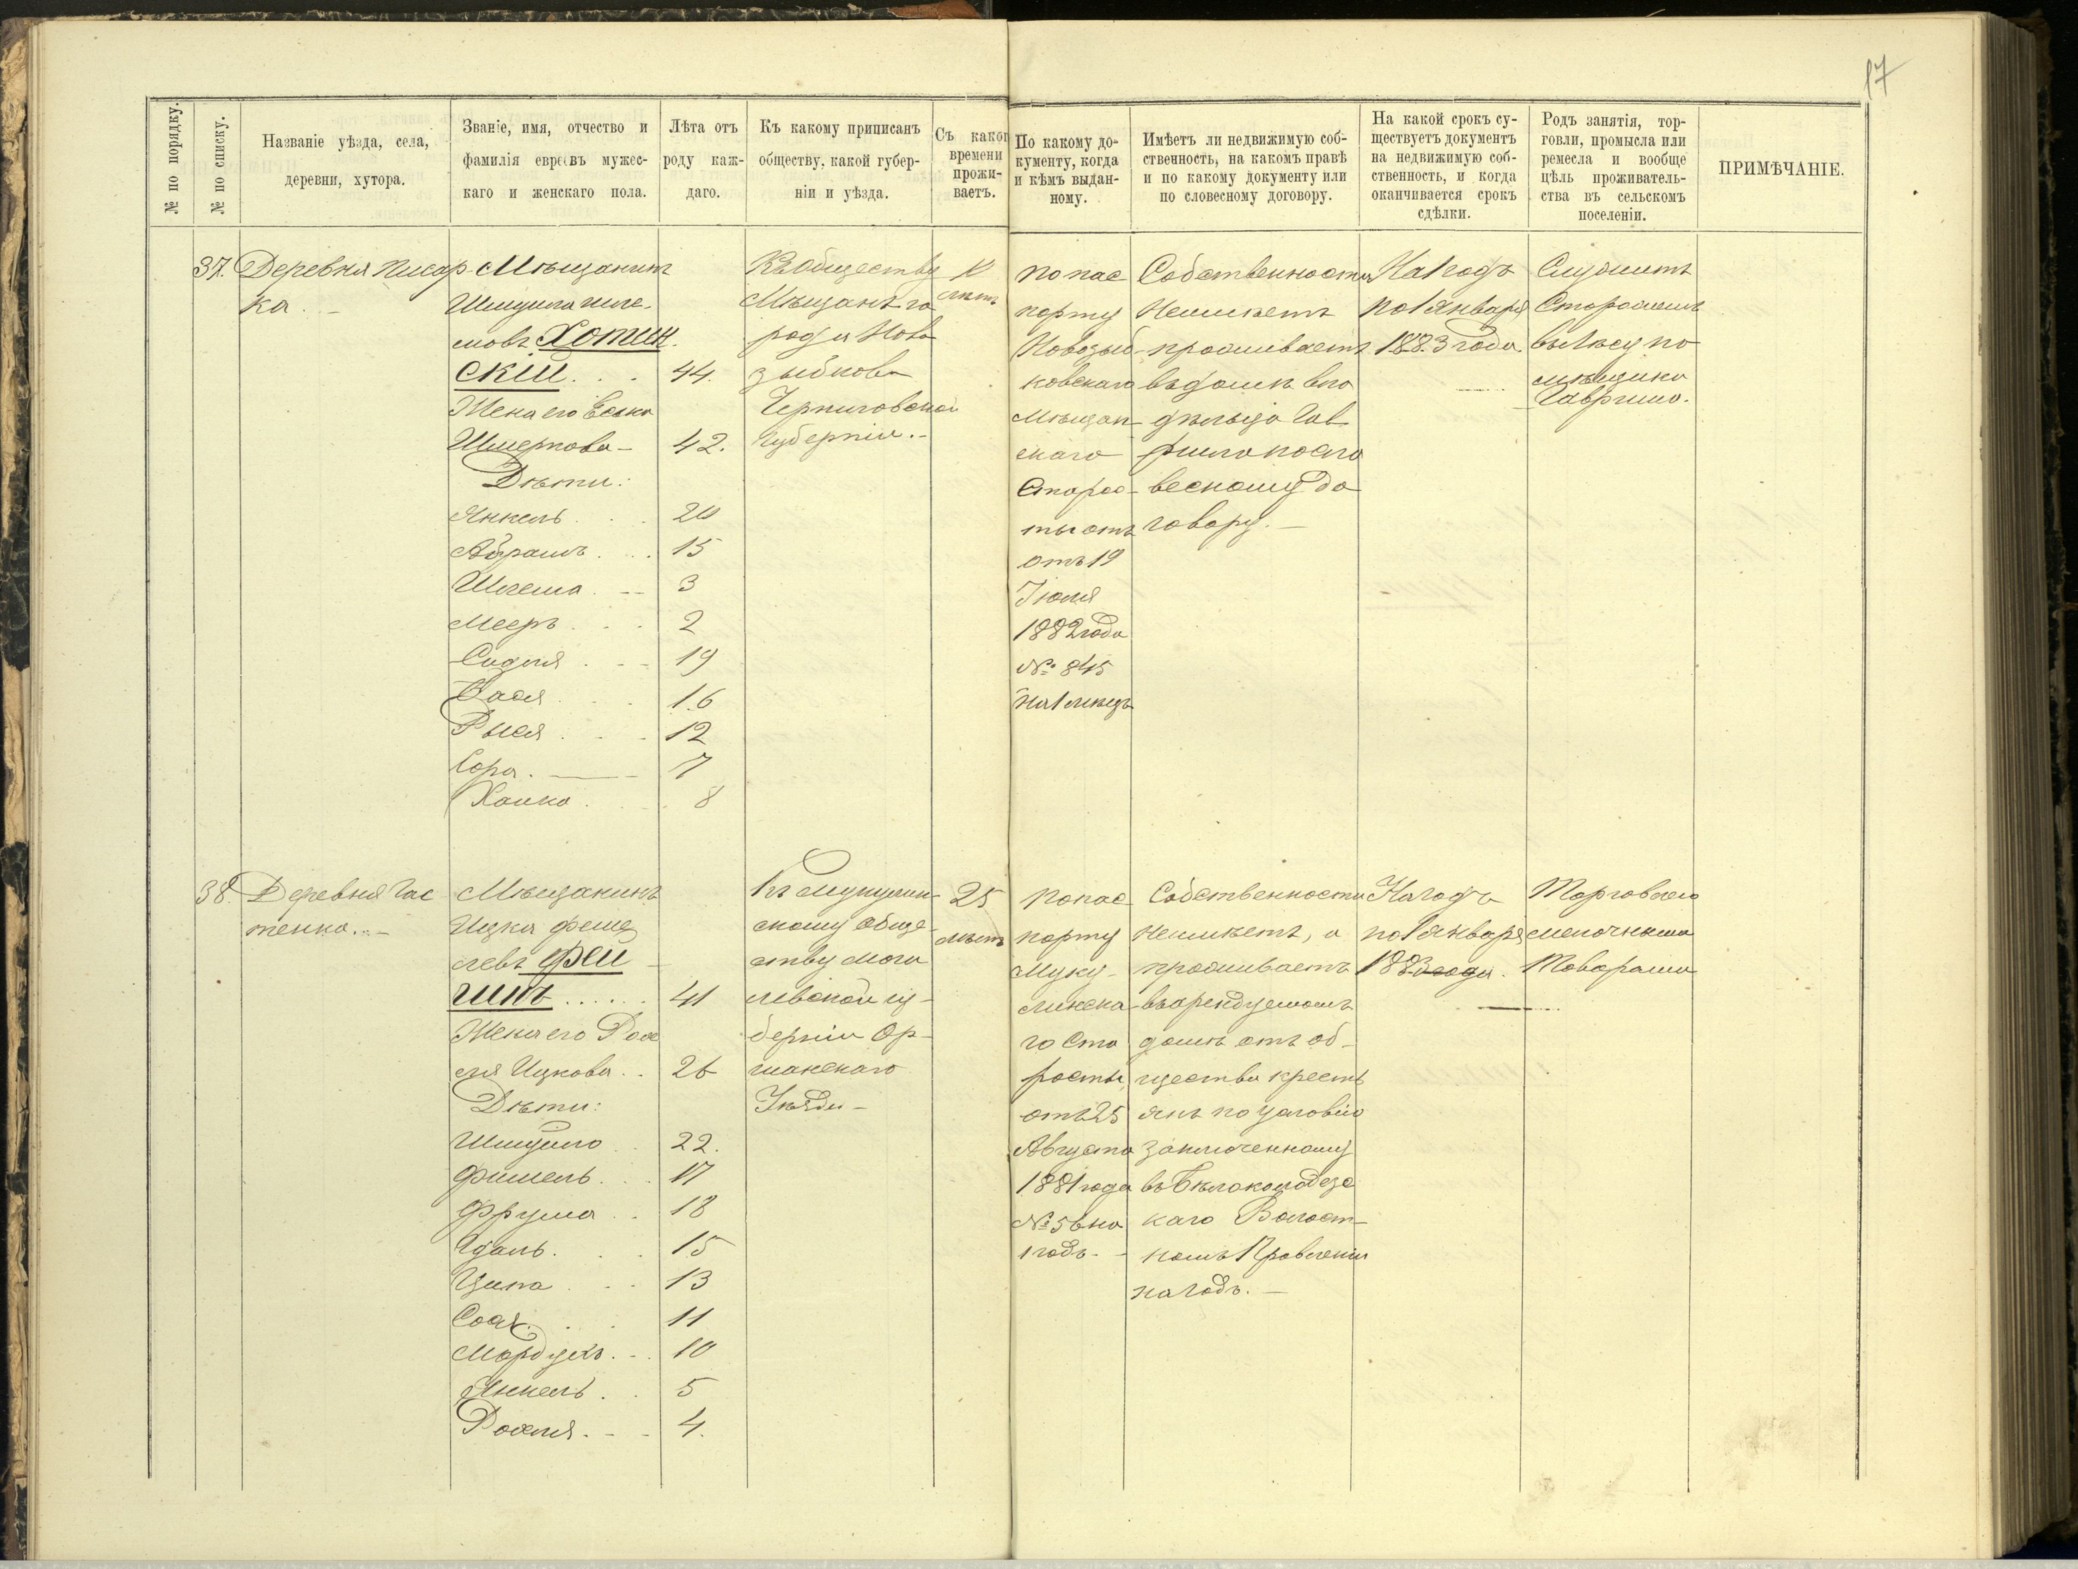 17
№ по порядку.
№ по списку.
Названіе уѣзда, села,
деревни, хутора.
Званіе, имя, отчество и
фамилія евреевъ мужес-
каго и женскаго пола.
Лѣта отъ
роду каж-
даго.
Къ какому приписанъ
обществу, какой губер-
ніи и уѣзда.
Съ каког
времени
прожи-
ваетъ.
По какому до-
кументу, когда
и кѣмъ выдан-
ному.
Имѣетъ ли недвижимую соб-
ственность, на какомъ правѣ
и по какому документу или
по словесному договору.
На какой срокъ су-
ществуетъ документъ
на недвижимую соб-
ственность, и когда
оканчивается срокъ
сдѣлки.
Родъ занятія, тор-
говли, промысла или
ремесла и вообще
цѣль проживатель-
ства въ сельскомъ
поселеніи.
ПРИМѢЧАНІЕ.
37.
Деревня Писар-
ка
Мѣщанинъ
Шмуила Шле-
мовъ Хотин
скій 44.
Жена его
Шмеркова 42.
Дѣти:
Янкель 20
Абрамъ 15
Шлема 3
Мееръ 2
19
Бася 16
Рыся 12
Сора 7
Хаика 8
Къ Обществу
Мѣщанъ го
рода Ново
зыбкова
Черниговской
Губерніи.
лѣтъ
по пас
порту
Новозыб-
ковскаго
Мѣщан
скаго
Старос-
ты отъ
отъ 19
Іюля
1882 года
№ 845
на 1 мѣсцъ
Собственности
Неимѣетъ
проживаетъ
въ домѣ вла
дѣльца Гав
рило по сло
весному до
говору.
На 1 годъ
по 1 Января
1883 года
Служитъ
Сторожемъ
въ лѣсу по
мѣщика
Гаврило.
38.
Деревня Гас
тенка.
Мѣщанинъ
Ицка Фише
левъ Фей
гинъ 41
Жена его Рох
ля Ицкова 26
Дѣти:
Шмуйло 22.
Фишель 17
Фрума 18
Идаль 15
Ципа 13
Сося 11
Мордухъ 10
Янкель 5
Рохля 4.
Къ Мукулин-
скому обще-
ству Моги
левской гу-
берніи Ор-
шанскаго
Уѣзда
25
лѣтъ
по пас
порту
Муку-
линска
го Ста
росты
отъ 25
Августа
1881 года
№ 56 на
1 годъ.
Собственности
неимѣетъ, а
проживаетъ
въ арендуемомъ
домѣ отъ об-
щества кресть
янъ по условію
заключенному
въ Бѣлоколодез
каго Волост-
номъ Правленіи
на годъ.
На годъ
по 1 Января
1883 года.
Торговлею
мелочными
Товарами